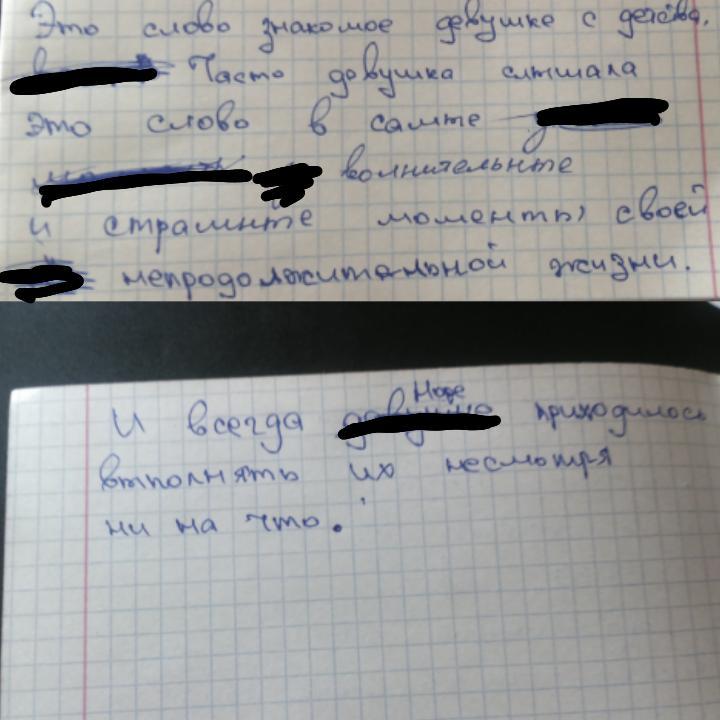 Это слово знакомое девушке с детсва.
Часто девушка слышала
Это слово в самые
волнительные
и страшные моменты своей
непродолжительной жизни.
И всегда Наде приходилось
выполнять их несмотря
ни на что.